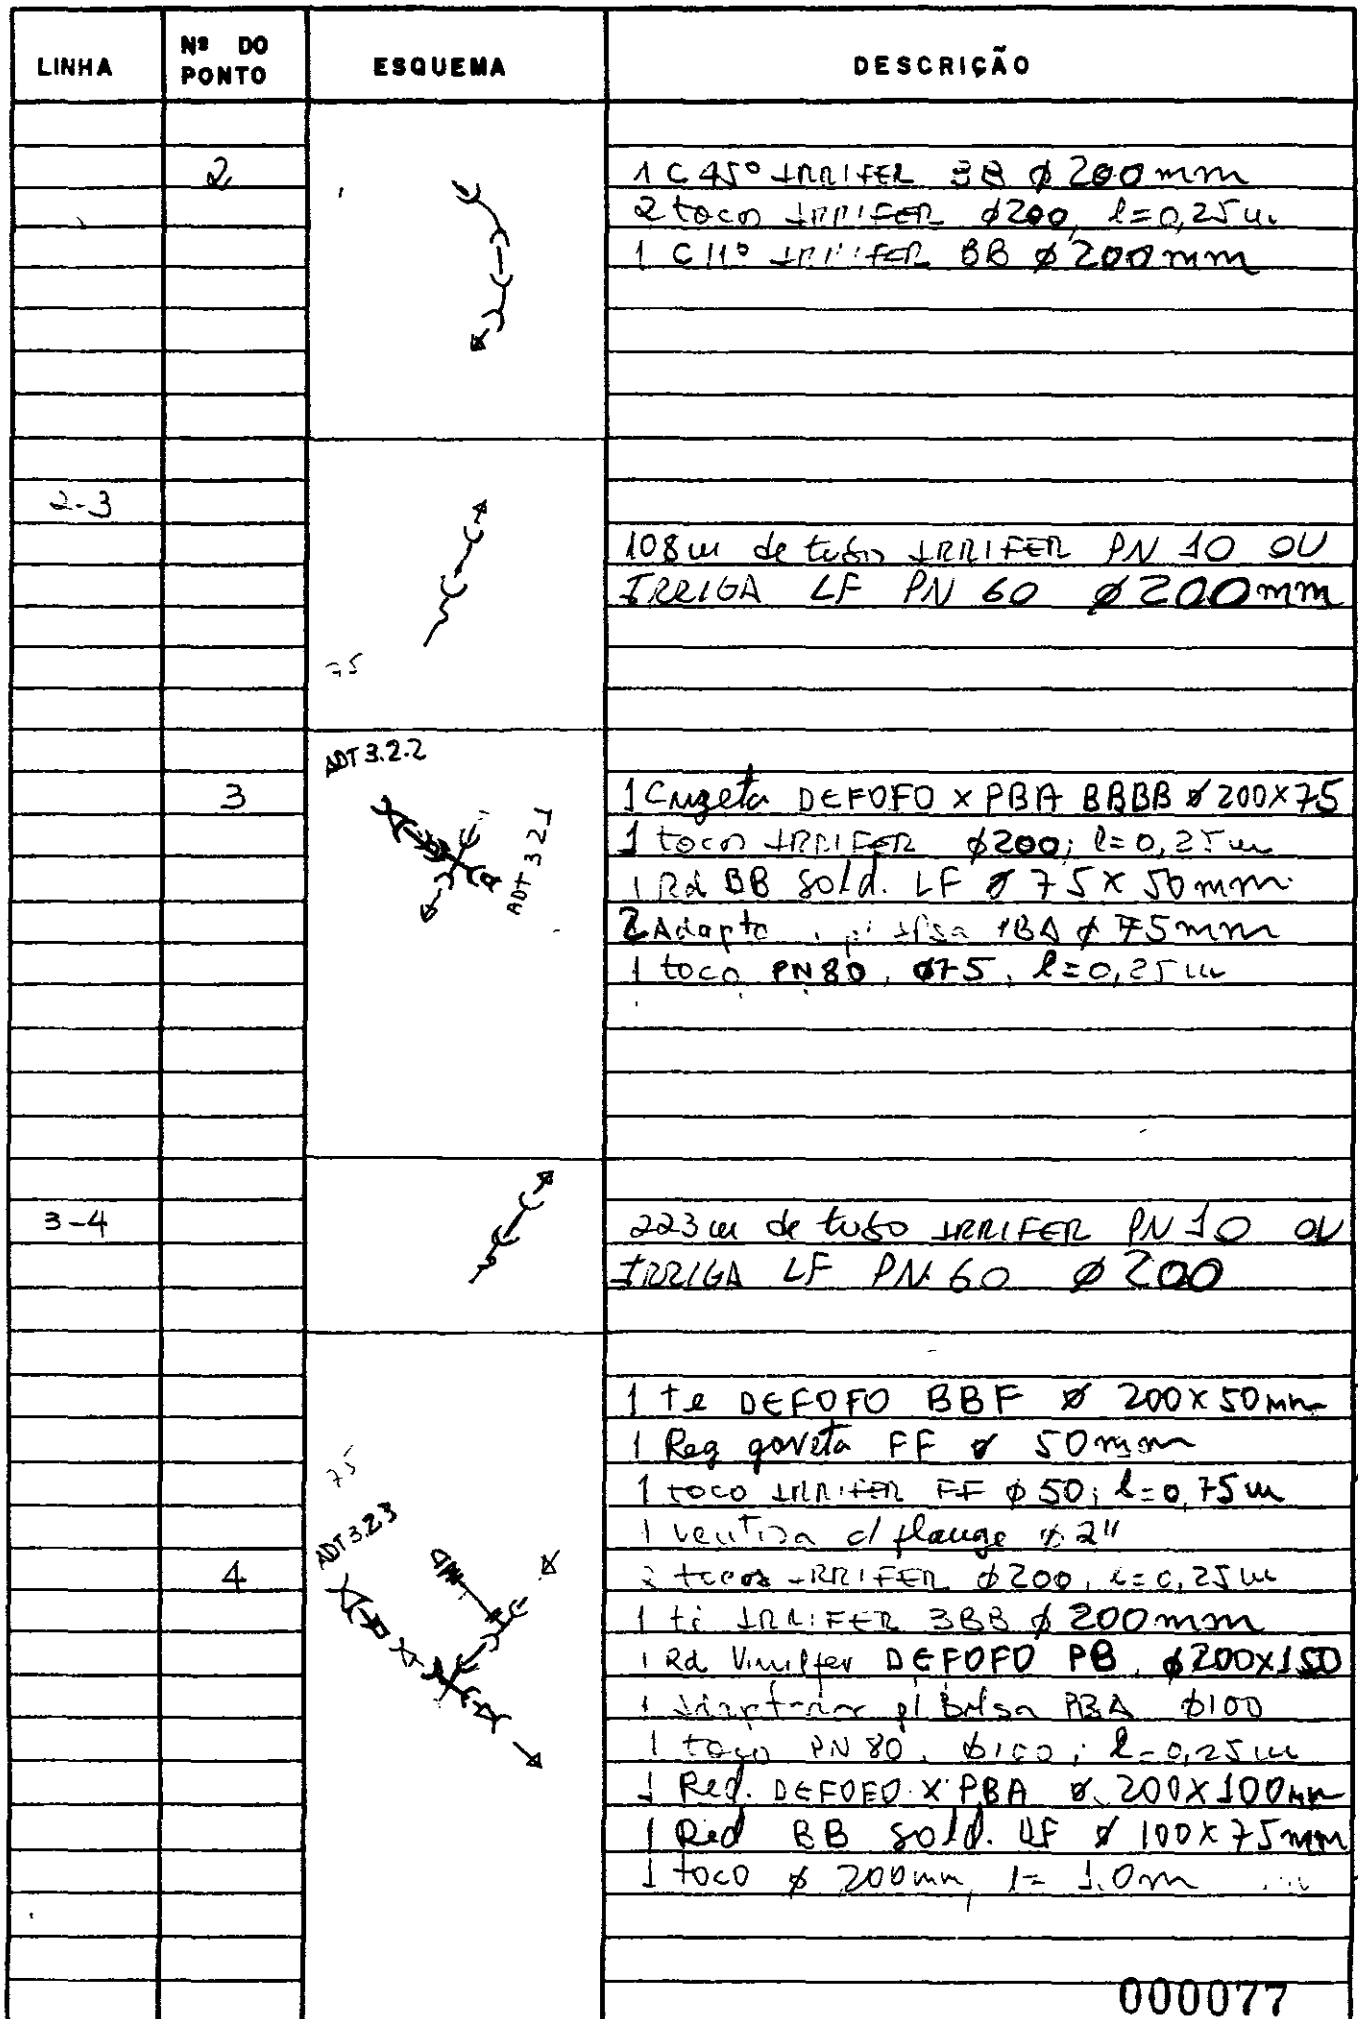 LINHA
Nº DO PONTO
ESQUEMA
DESCRIÇÃO
2
1 C 45° IRRIFER BB ø 200mm
2 toco IRRIFER ø200, l=0,25m
1 C 11° IRRIFER BB ø 200mm
2-3
108m de tubo IRRIFER PN 10 OU
IRRIGA LF PN 60 ø 200mm
75
ADT 3.2.2
ADT 3 2 1
3
1 Cruzeta DEFOFO x PBA BBBB ø 200x75
1 toco IRRIFER ø200; l=0,25m
1 Rd BB Sold. LF ø 75 x 50mm
2 Adapta ø 75mm
1 toco PN80, ø75, l=0,25m
3-4
223m de tubo IRRIFER PN 10 OU
IRRIGA LF PN 60 ø 200
75
ADT 3.2.3
4
1 te DEFOFO BBF ø 200x50mm
1 Reg gaveta FF ø 50mm
1 toco IRRIFER FF ø 50; l=0,75m
1 ventosa c/ flange ø 2"
2 tocos IRRIFER ø200, l=0,25m
1 te IRRIFER BBB ø 200mm
1 Rd Vinilfer DEFOFO PB, ø200x150
1 p/ Bolsa PBA ø100
1 toco PN 80, ø100; l=0,25m
1 Red. DEFOFO x PBA ø 200x100mm
1 Red BB sold. LF ø 100x75mm
1 toco ø 200mm, l= 1.0m
000077